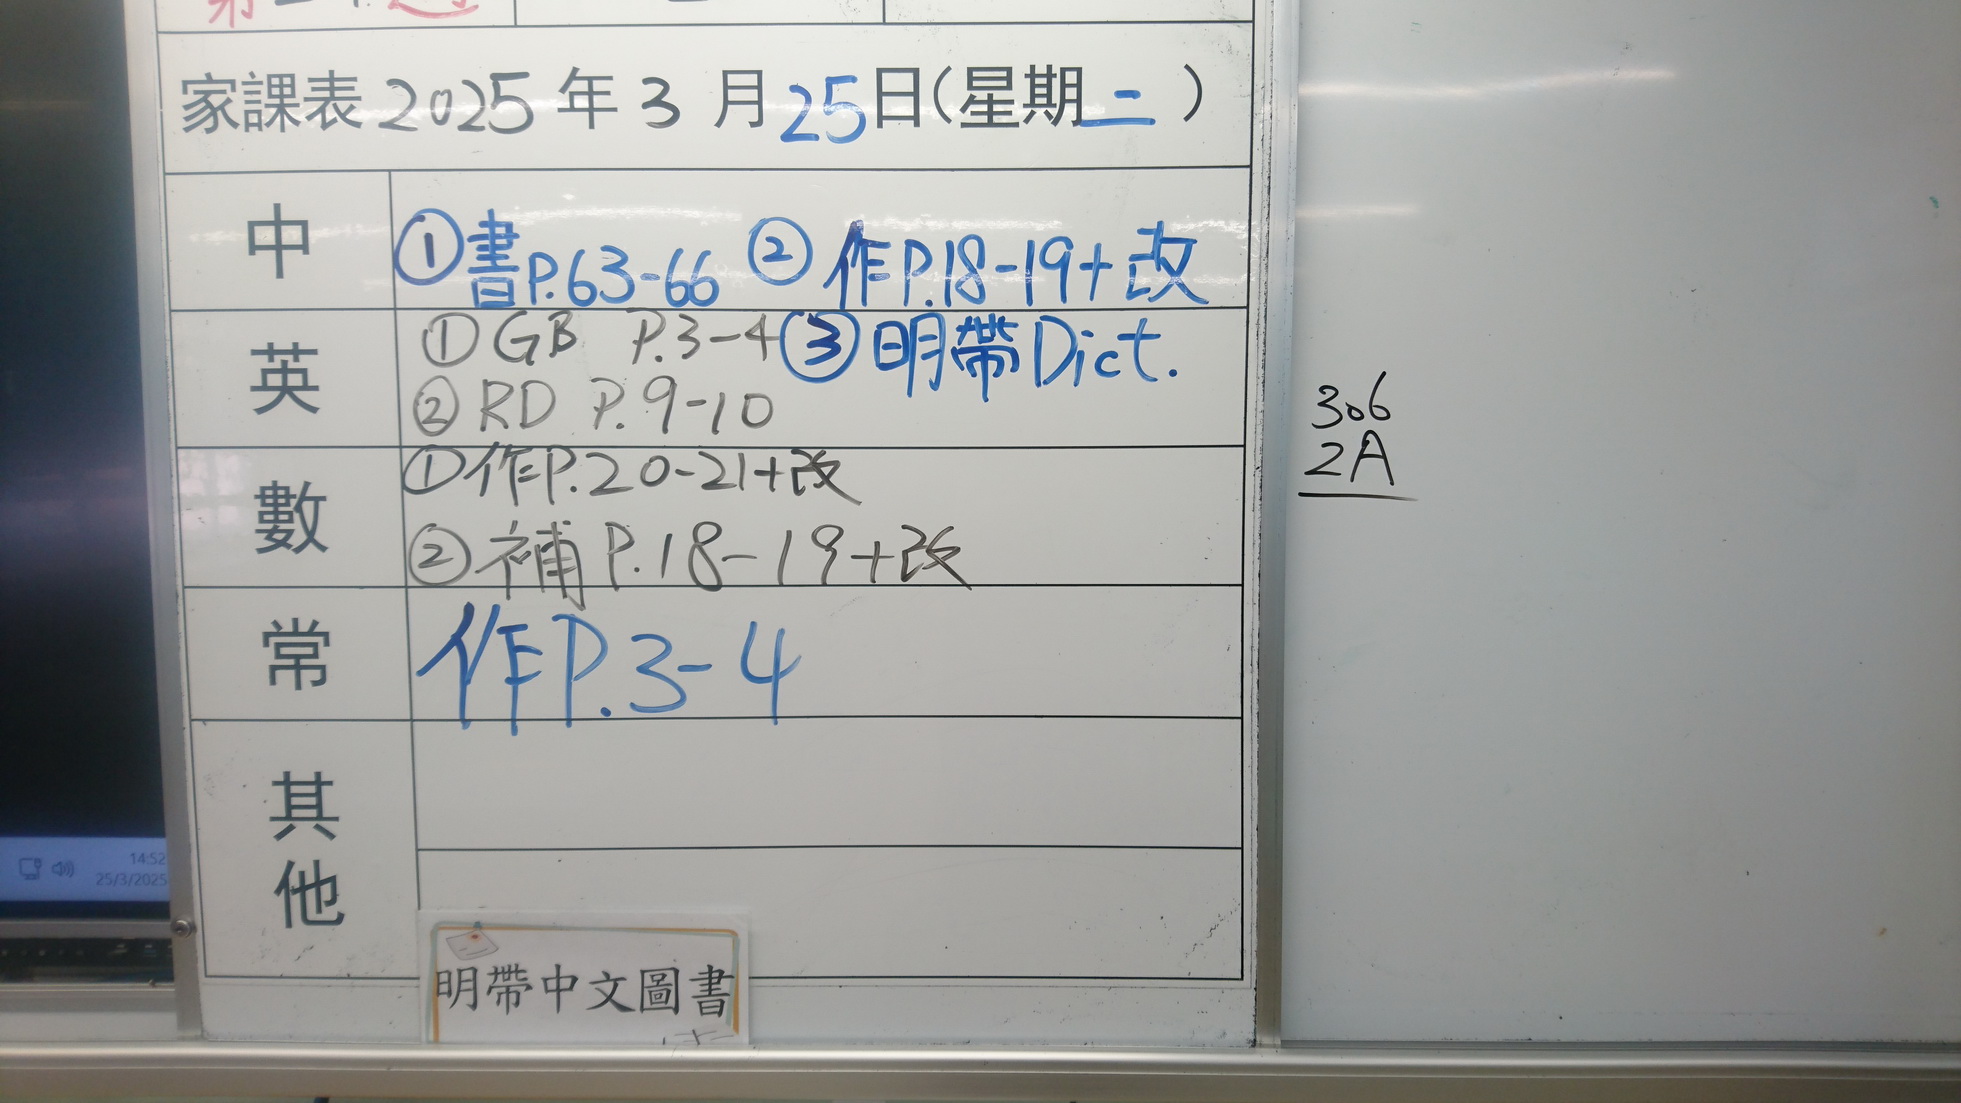 家課表 2025 年 3 月 25 日(星期二)
中
①書P.63-66 ②作P.18-19+改
英
①GB P.3-4 ③明帶Dict.
②RD P.9-10
數
①作P.20-21+改
②補P.18-19+改
常
作P.3-4
其他
明帶中文圖書
306
2A
14:52
25/3/2025